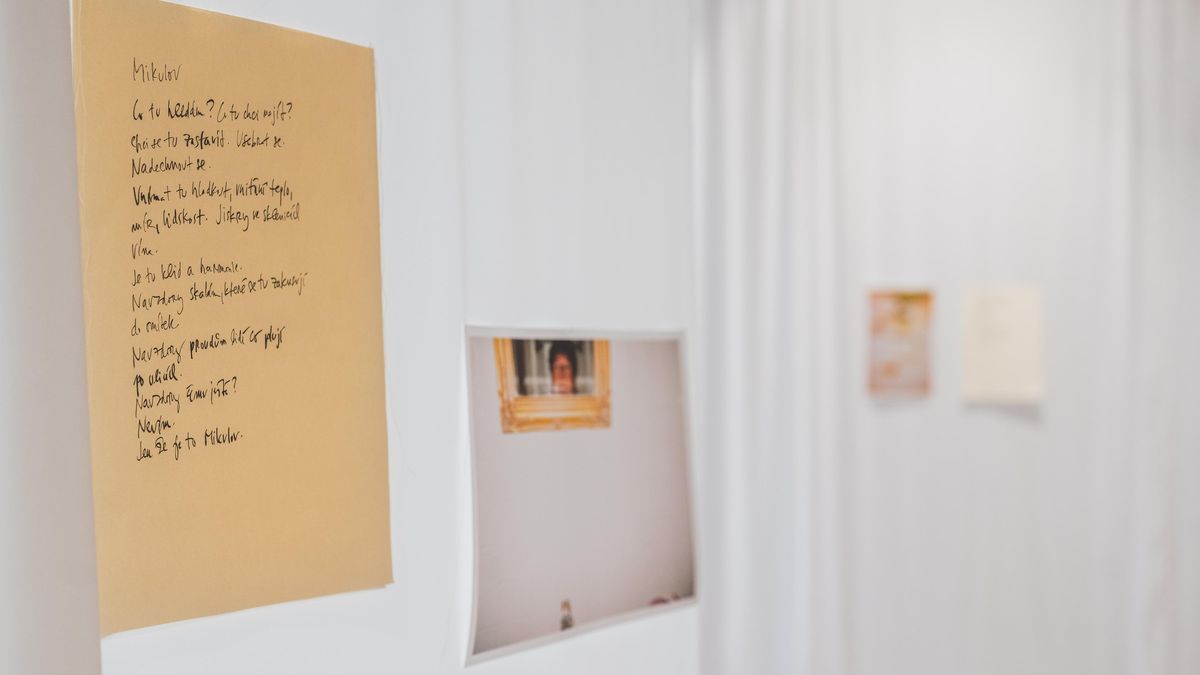 Mikulov
Co tu hledám? Co tu chci najít?
Chci se tu zastavit. Usebrat se.
Nadechnout se.
Vnímat tu hladkost, vnitřní teplo,
lidskost. Jiskry ve sklenicích
vína.
Je tu klid a harmonie.
Navzdory skalám, které se tu zakusují
do omítek.
Navzdory proudům lidí co plují
po ulicích.
Navzdory čemu ještě?
Nevím.
Jen že je to Mikulov.